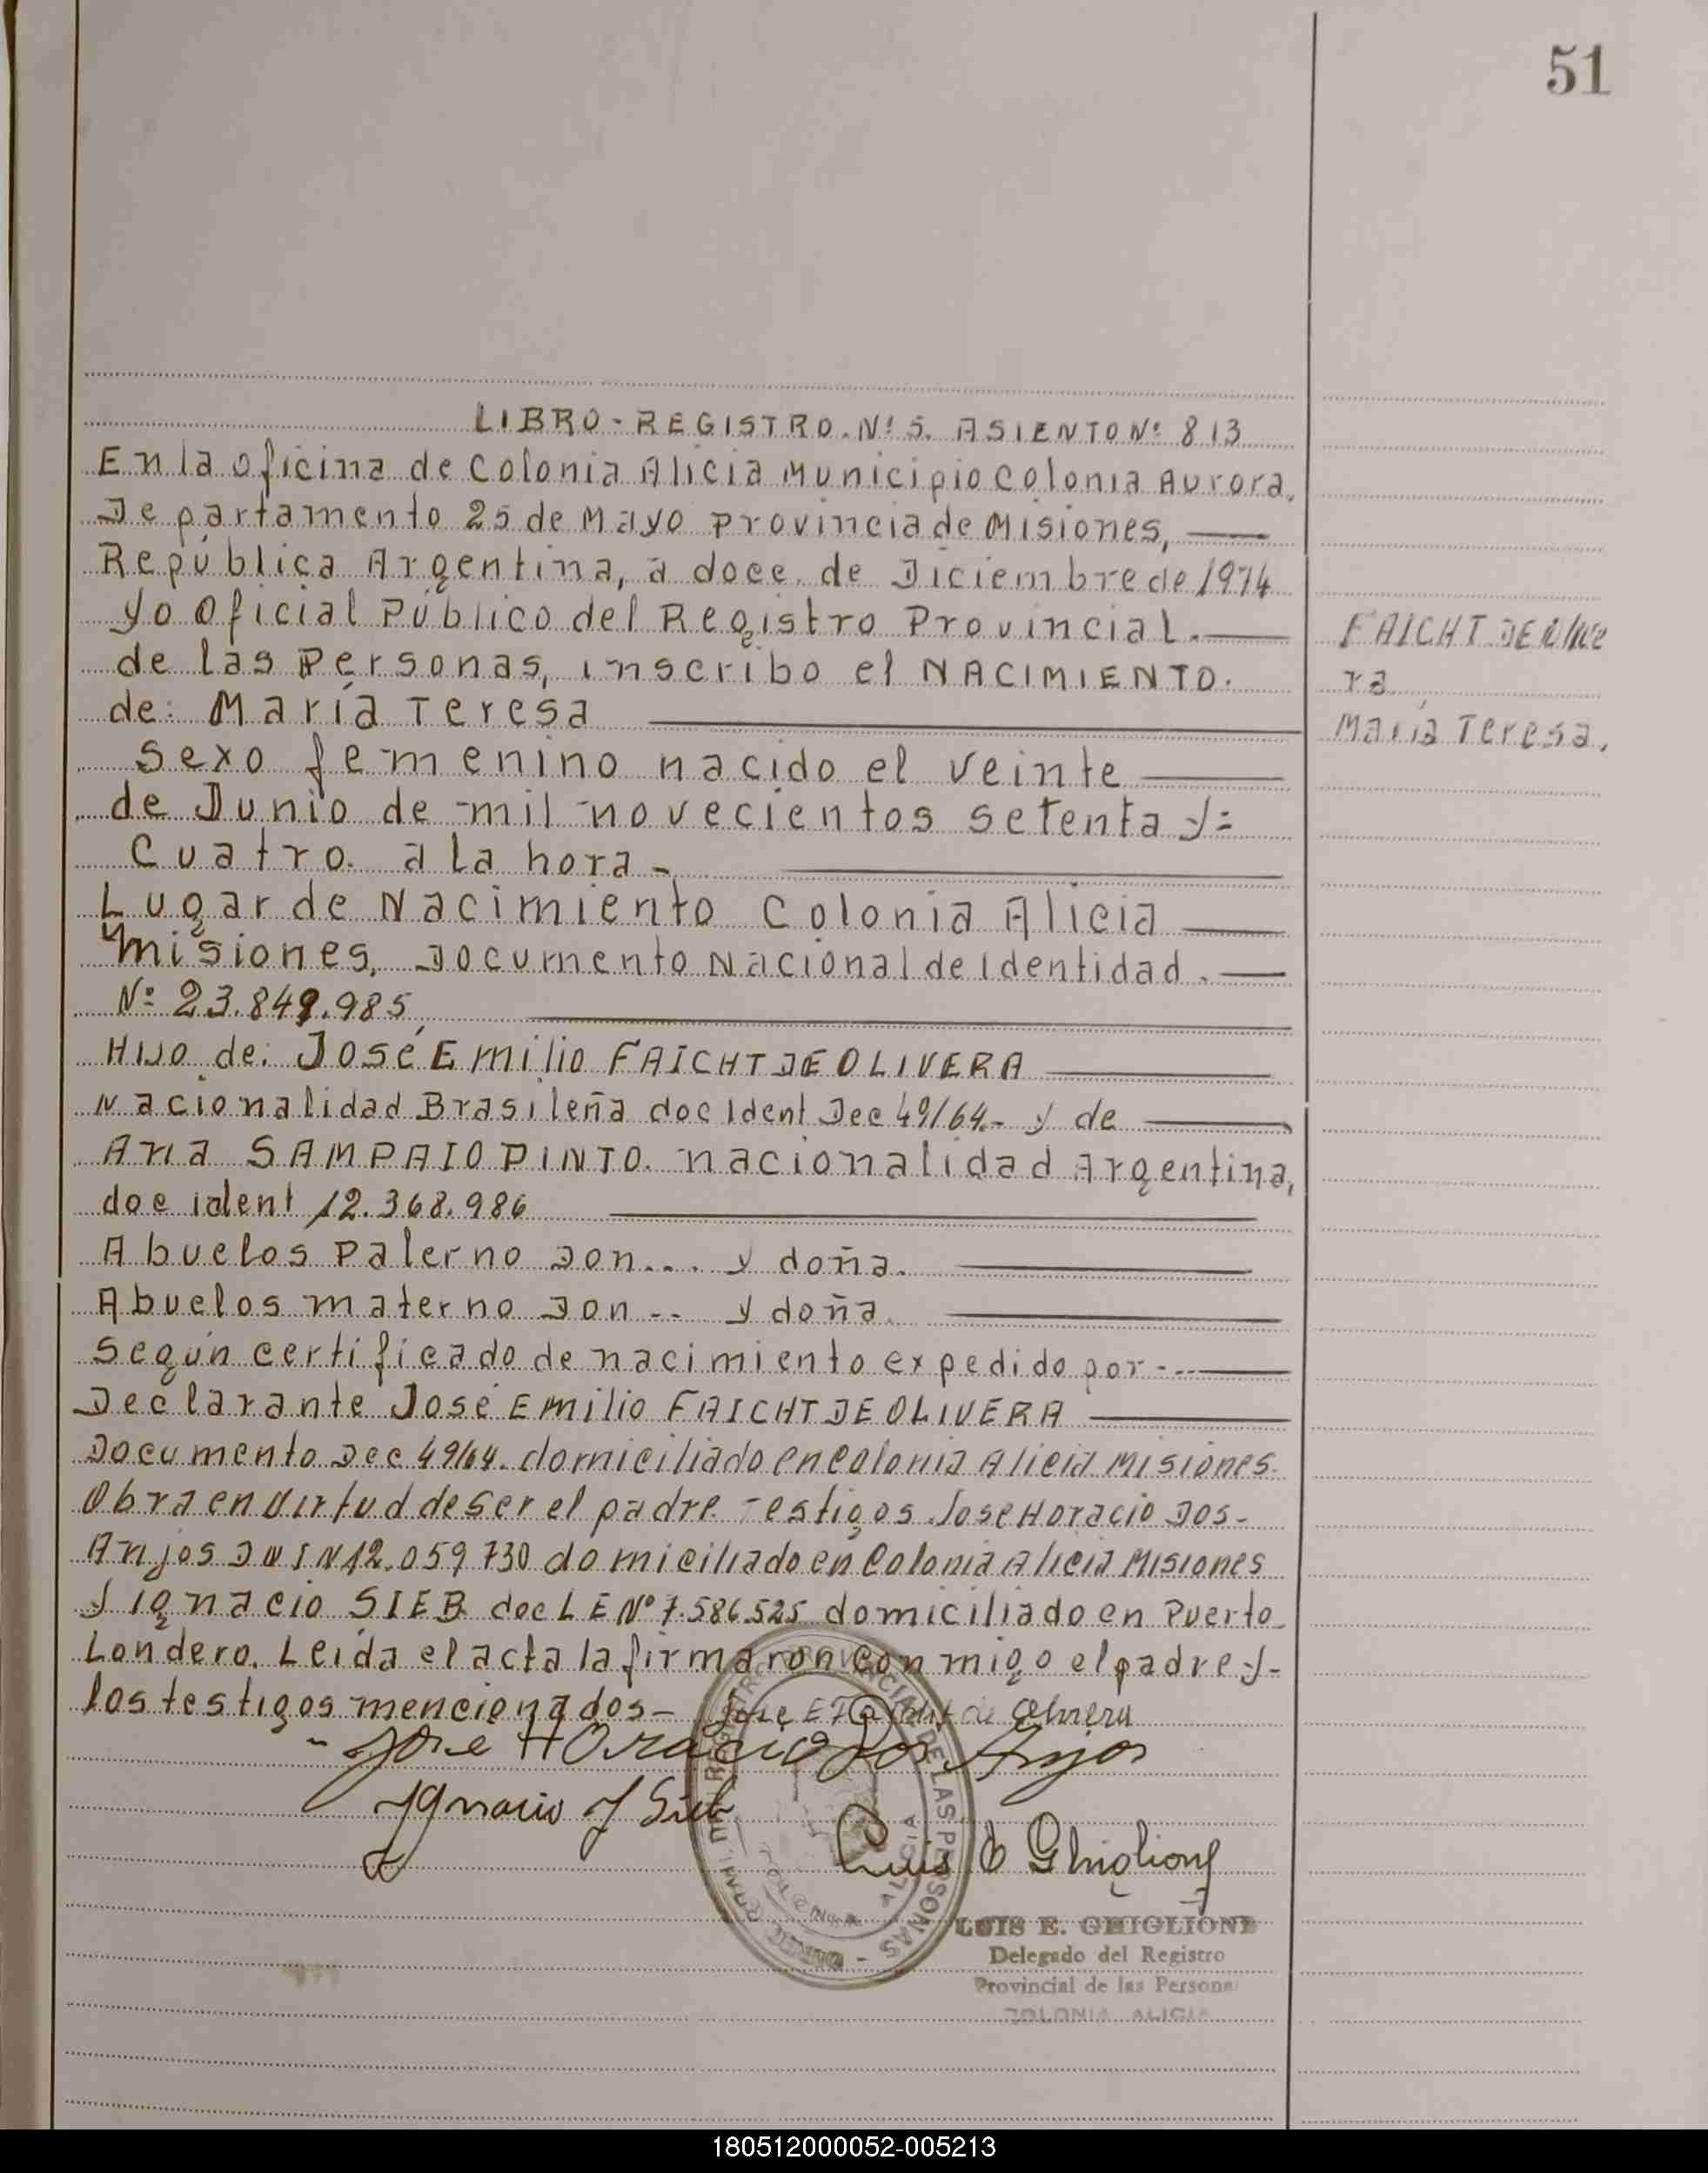 51
LIBRO-REGISTRO. Nº 5. ASIENTO Nº 813
En la oficina de Colonia Alicia Municipio Colonia Aurora.
Departamento 25 de Mayo Provincia de Misiones,
República Argentina, a doce de Diciembre de 1974
yo Oficial Público del Registro Provincial.
de las Personas, inscribo el NACIMIENTO.
de: María Teresa
sexo femenino nacido el veinte
de Junio de mil novecientos setenta y=
Cuatro. a la hora -
Lugar de Nacimiento Colonia Alicia
Misiones, Documento Nacional de Identidad.
Nº 23.849.985
HIJO de: José Emilio FAICHT DE OLIVERA
Nacionalidad Brasileña doc Ident Dec 49/64.- y de
Ana SAMPAIO PINTO. nacionalidad Argentina,
doc ident 12.368.986
Abuelos Palerno Don.... y doña.
Abuelos materno Don -- y doña.
Según certificado de nacimiento expedido por -..
Declarante José Emilio FAICHT DE OLIVERA
Documento Dec 49/64. domiciliado en Colonia Alicia Misiones.
Obra en Virtud de ser el padre. Testigos Jose Horacio Dos-
Anjos DNI N 12.059.730 domiciliado en Colonia Alicia Misiones
y Ignacio SIEB doc L E Nº 7.586.525 domiciliado en Puerto
Londero. Leída el acta la firmaron conmigo el padre y-
los testigos mencionados- Jose E Faicht de Olivera
Jose Horacio Dos Anjos
Ignacio J Sieb
Luis E Ghiglione
FAICHT DE Olive
ra
María Teresa.
REGISTRO PROVINCIAL DE LAS PERSONAS
COLONIA ALICIA
LUIS E. GHIGLIONE
Delegado del Registro
Provincial de las Persona
COLONIA ALICIA
180512000052-005213